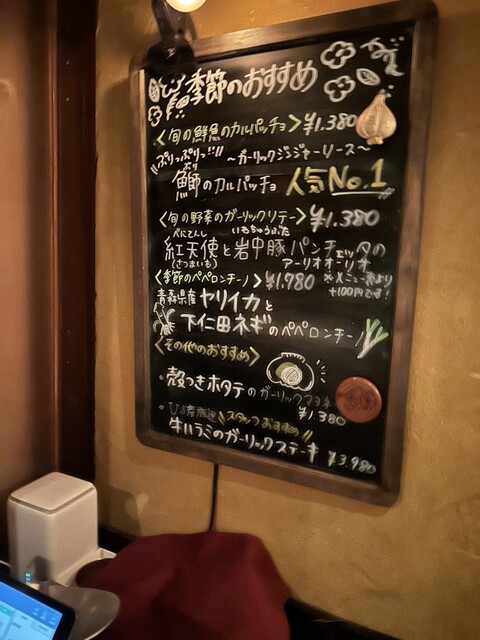 季節のおすすめ
<旬の鮮魚のカルパッチョ> ¥1.380
ぷりっぷりっ!! ~ガーリックジンジャーソース~
ぶり
鰤のカルパッチョ 人気No.1
<旬の野菜のガーリックソテー> ¥1.380
べにてんし いわちゅうぶた
紅天使と岩中豚パンチェッタの
(さつまいも) アーリオオーリオ
<季節のペペロンチーノ> ¥1.780 ※メニュー表より
+100円です!
青森県産ヤリイカと
下仁田ネギのペペロンチーノ
<その他のおすすめ>
・殻つきホタテのガーリック
¥1380
スタッフおすすめ
牛ハラミのガーリックステーキ ¥3.980